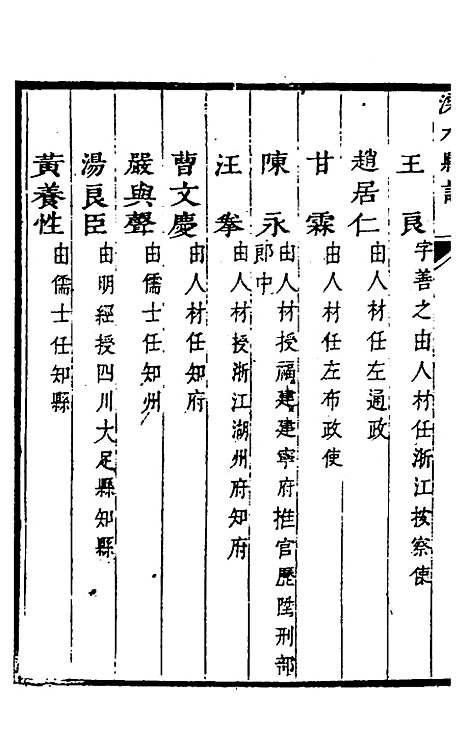 水縣
王良 字善之由人材任浙江按察使
趙居仁 由人材任左通政
甘霖 由人材任左布政使
陳永 由人材授福建建寧府推官歷陞刑部
郎中
汪拳 由人材授浙江湖州府知府
曹文慶 由人材任知府
嚴與聲 由儒士任知州
湯良臣 由明經授四川大足縣知縣
黃養性 由儒士任知縣